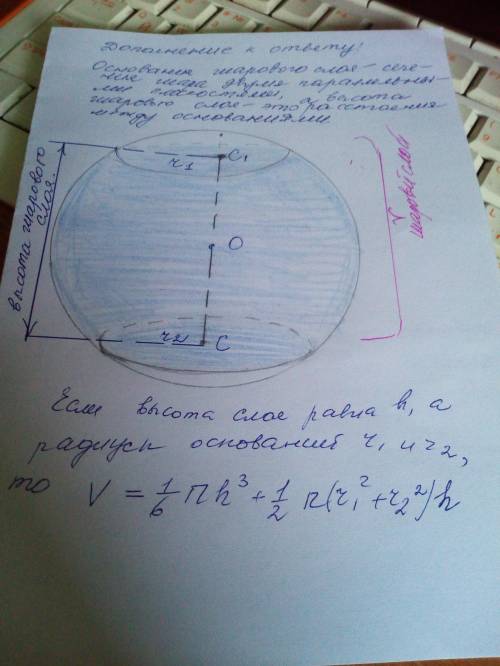 Дополнение к ответу!
Основания шарового слоя - сече-
ния шара двумя параллельны-
ми плоскостями, а высота
шарового слоя - это расстояние
между основаниями.
высота шарового
слоя.
r₁
C₁
O
r₂
C
шаровой слой
Если высота слоя равна h, а
радиусы оснований r₁ и r₂,
то V = 1/6 Πh³ + 1/2 π(r₁² + r₂²)h